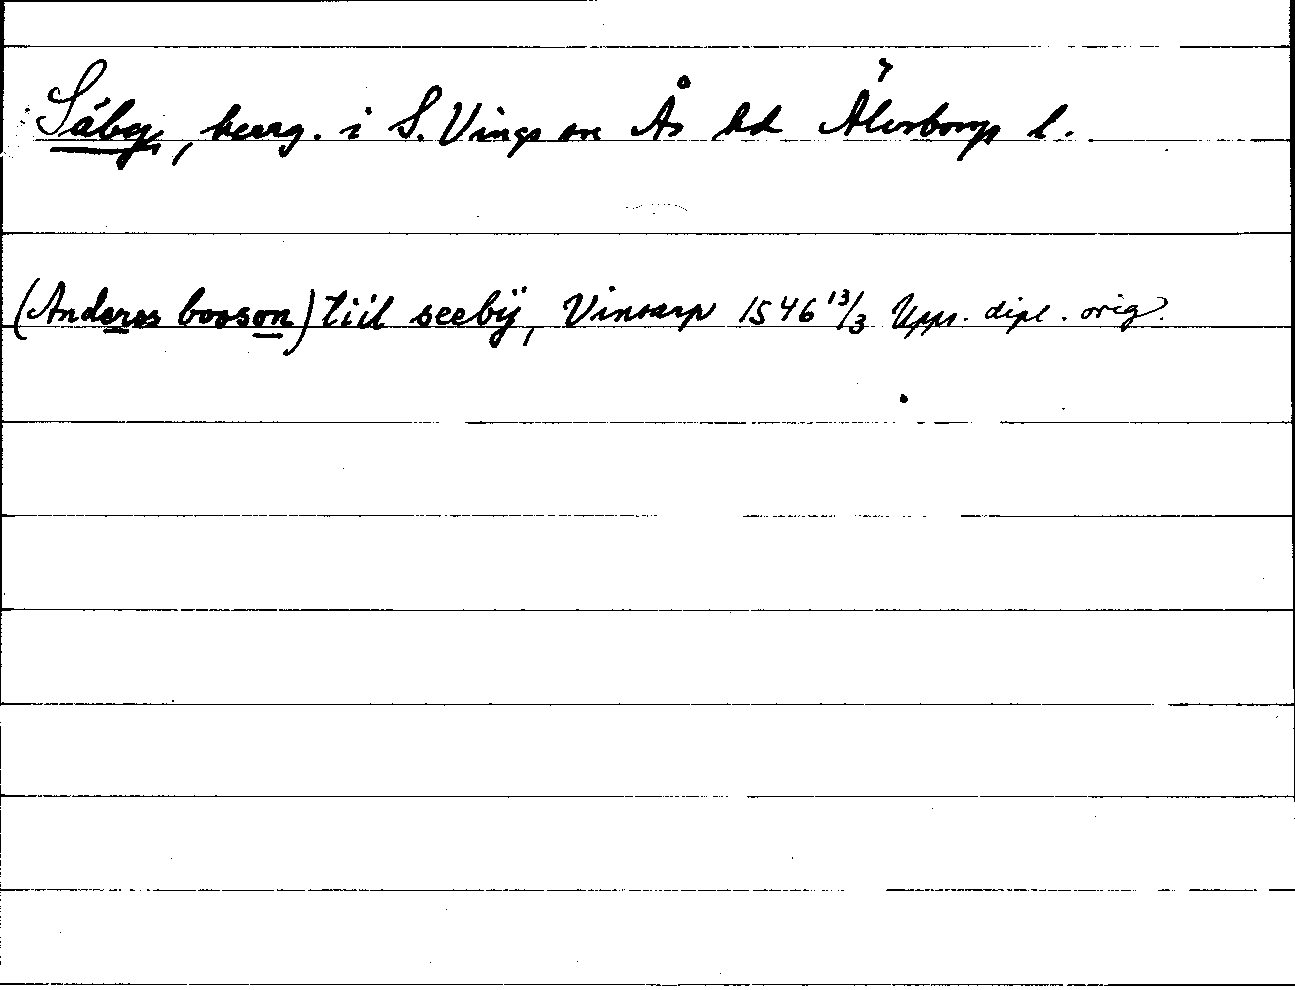 Säby, herrg. i S. Vings sn Ås hd Älvsborgs l.
(Anderss booson) tiil seebÿ, Vinsarp 1546 13/3 Upps. dipl. orig.